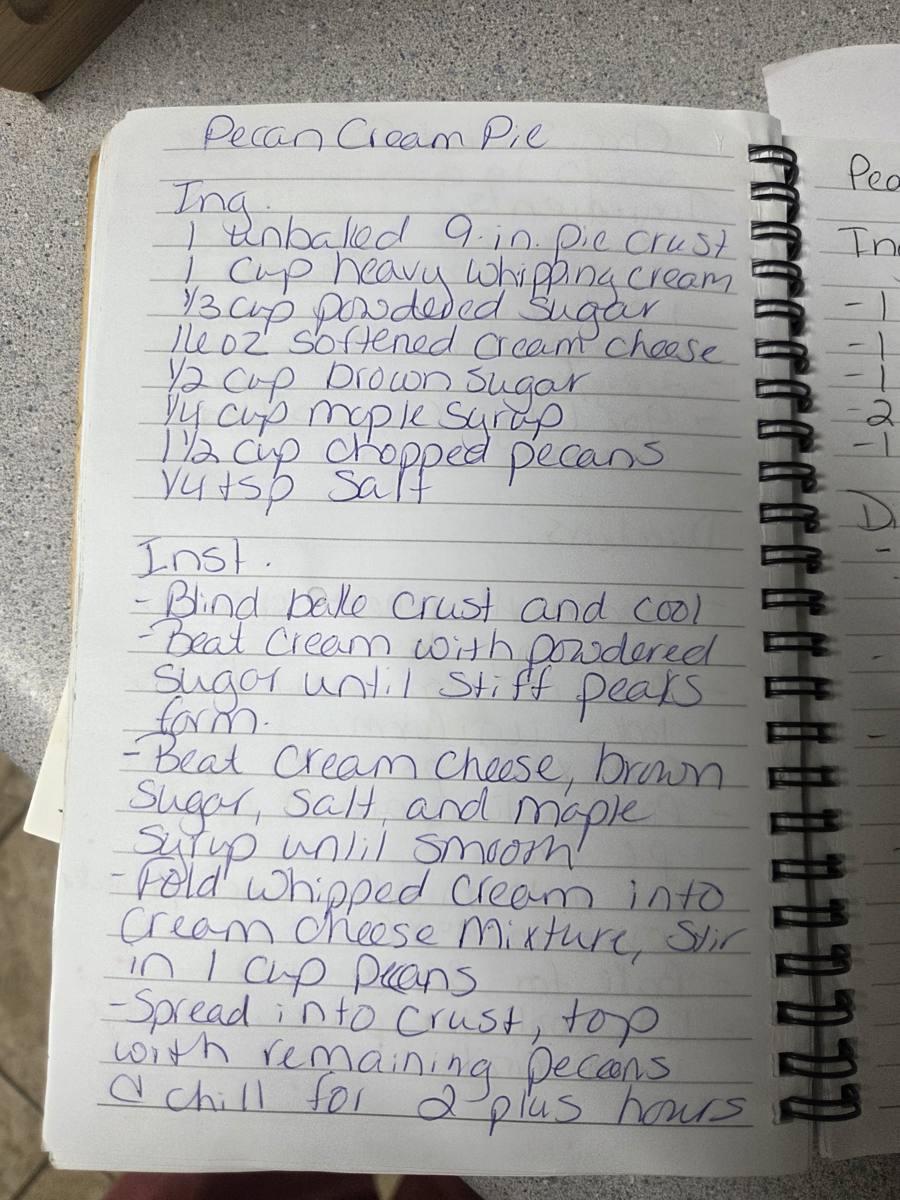 Pecan Cream Pie
Ing.
1 unbaked 9.in. pie crust
1 cup heavy whipping cream
1/3 cup powdered sugar
16 oz softened cream cheese
1/2 cup brown sugar
1/4 cup maple syrup
1 1/2 cup chopped pecans
1/4 tsp Salt
Inst.
- Blind bake crust and cool
- Beat cream with powdered
sugar until stiff peaks
form.
- Beat cream cheese, brown
sugar, salt, and maple
syrup until smooth
- Fold whipped cream into
cream cheese mixture, stir
in 1 cup pecans
- Spread into crust, top
with remaining pecans
& chill for 2 plus hours
Pec
In
- 1
- 1
- 1
- 2
- 1
D
-
-
-